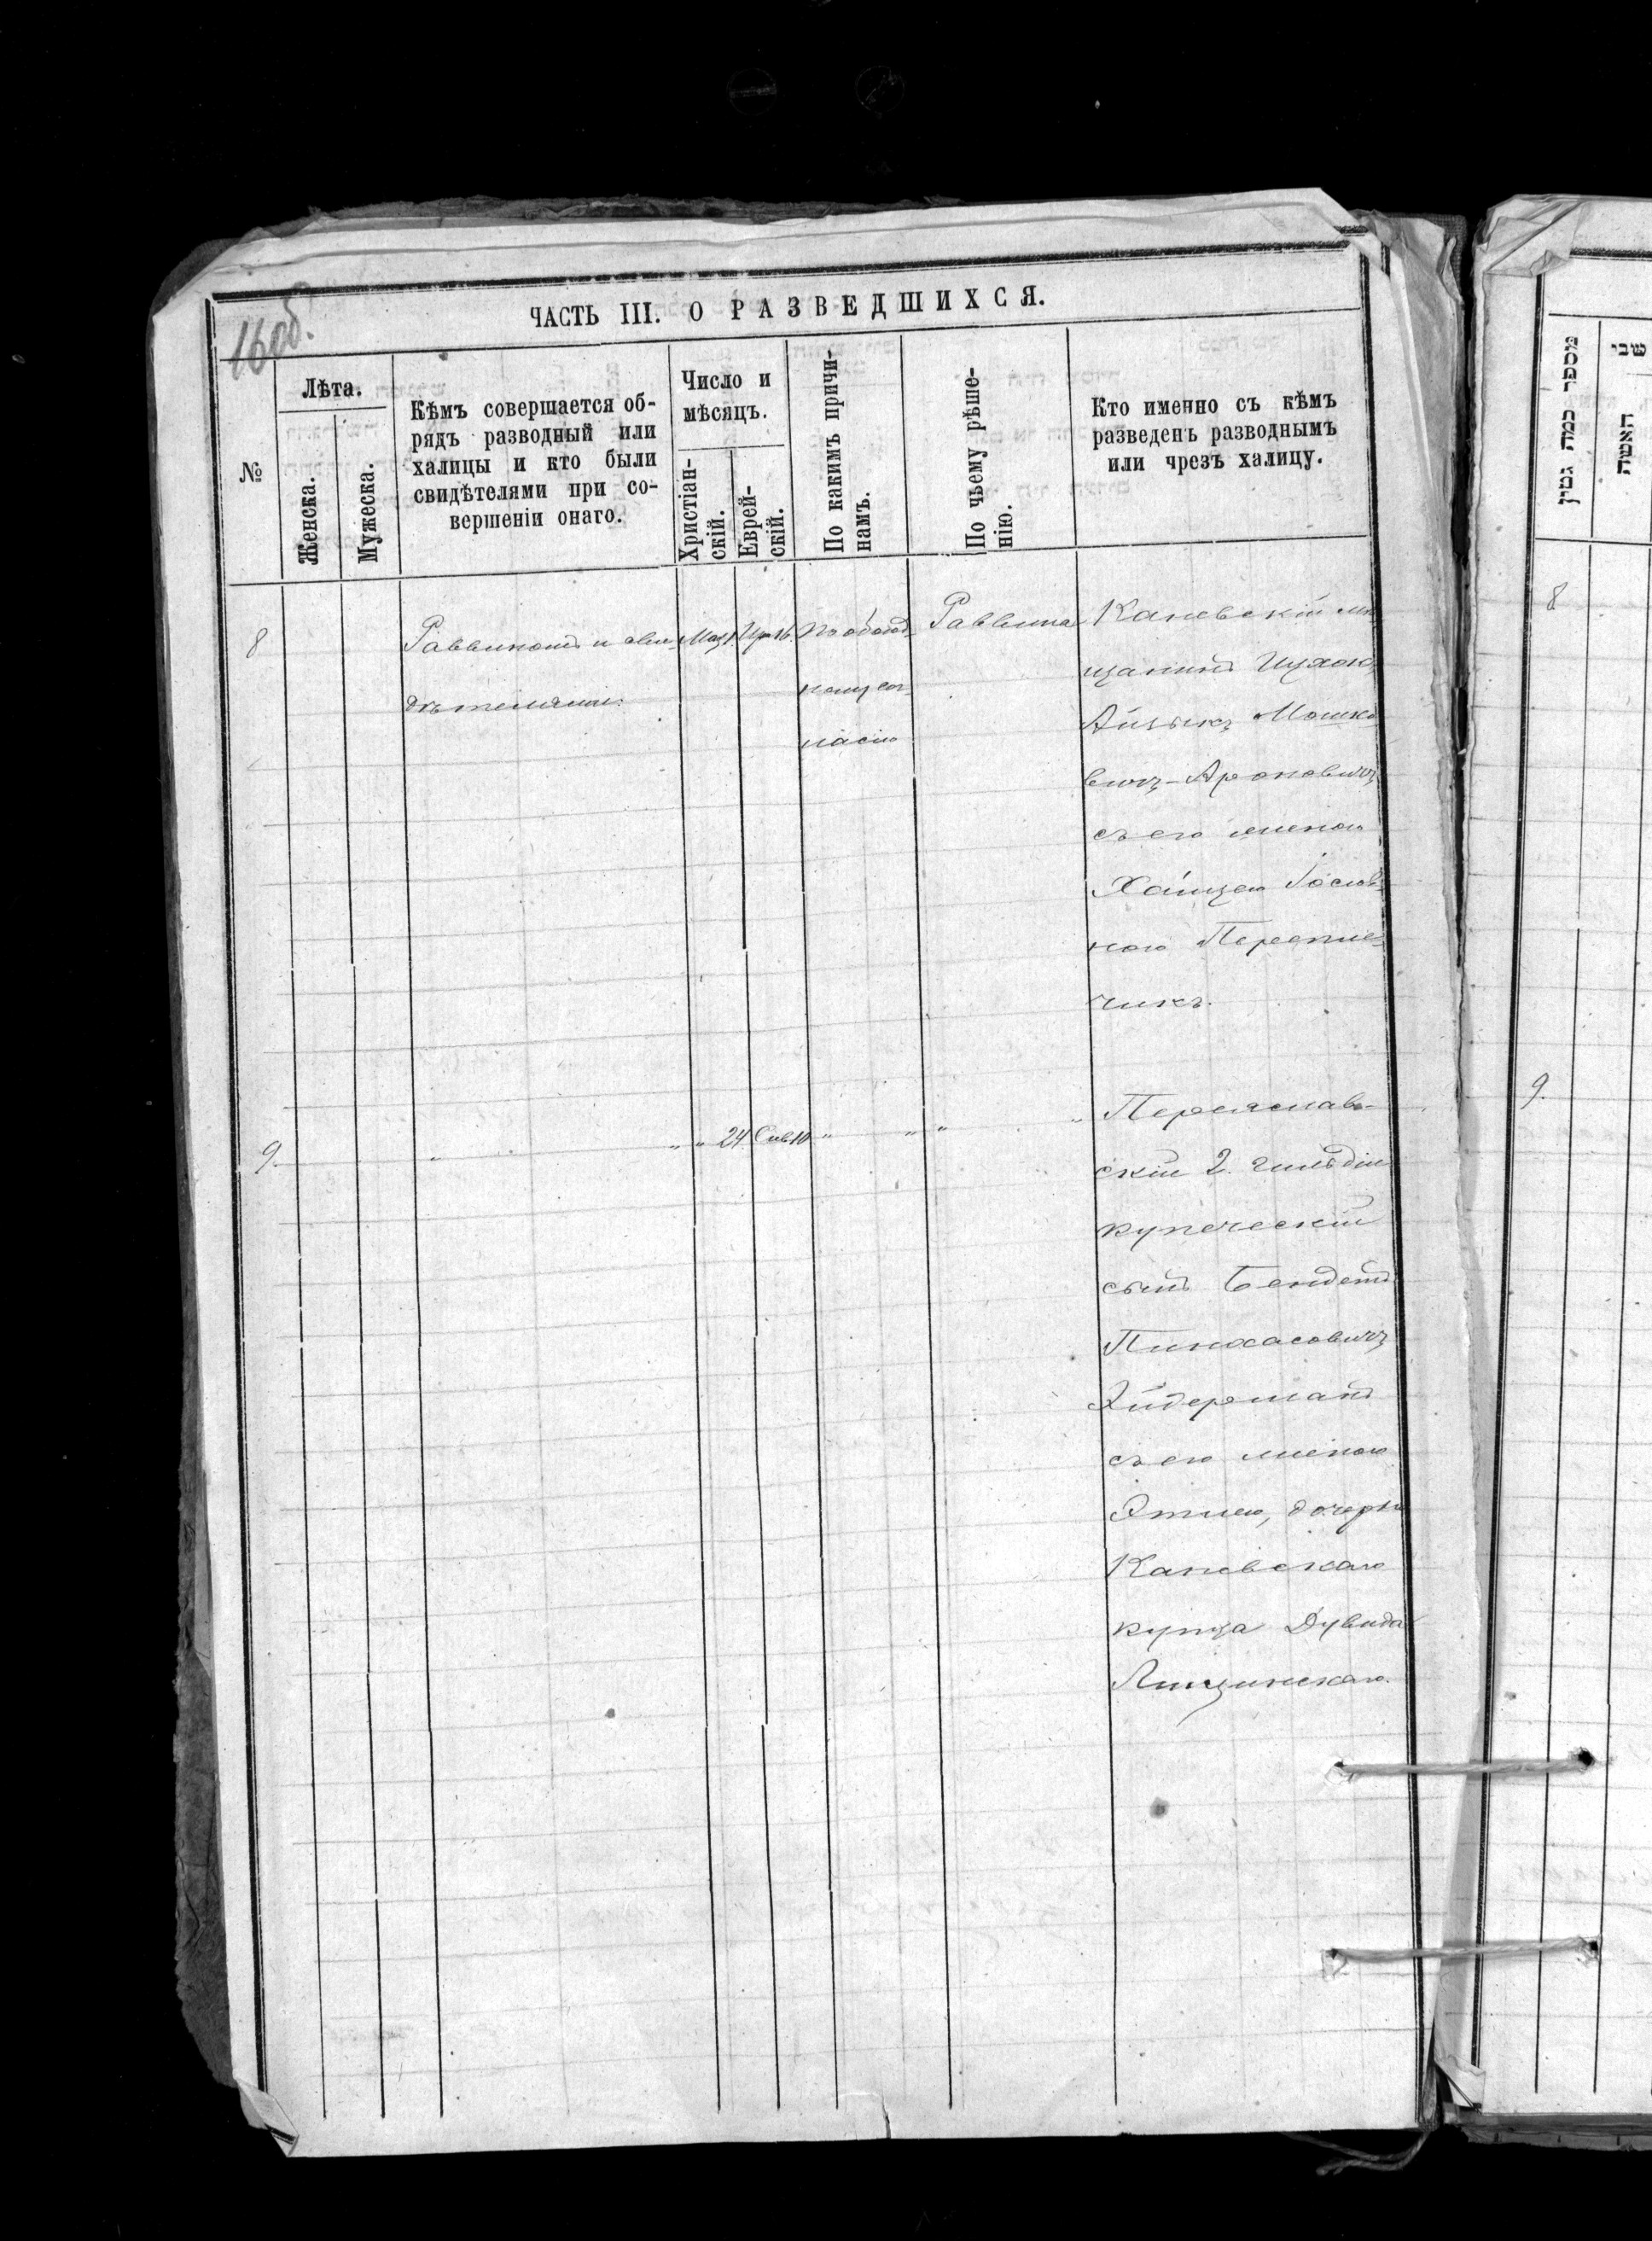 16 об.
ЧАСТЬ III. О РАЗВЕДШИХСЯ.
№
Лѣта.
Женска.
Мужеска.
Кѣмъ совершается об-
рядъ разводный или
халицы и кто были
свидѣтелями при со-
вершеніи онаго.
Число и
мѣсяцъ.
Христіан-
скій.
Еврей-
скій.
По какимъ причи-
намъ.
По чьему рѣше-
нію.
Кто именно съ кѣмъ
разведенъ разводнымъ
или чрезъ халицу.
8
Раввиномъ и сви-
дѣтелями.
Мая 1.
Ир 16.
По обоюд
ному сог
ласію
Раввина
Каневскій мѣ
щанинъ Ицхок
Айзыкъ Мошко
вичъ-Ароновичъ
съ его женою
Хайцею Іослов
ною Перепле-
чикъ.
9.
" " " 24 Сив. 10 " " " "
Переяслав-
скій 2. гильдіи
купеческій
сынъ Бендетъ
Пинхасовичъ
Эйдерманъ
съ его женою
Этлею, дочерью
Каневскаго
купца Дувида
Лищинскаго.
מספר כמה גטין
שני
האשה
8
9.